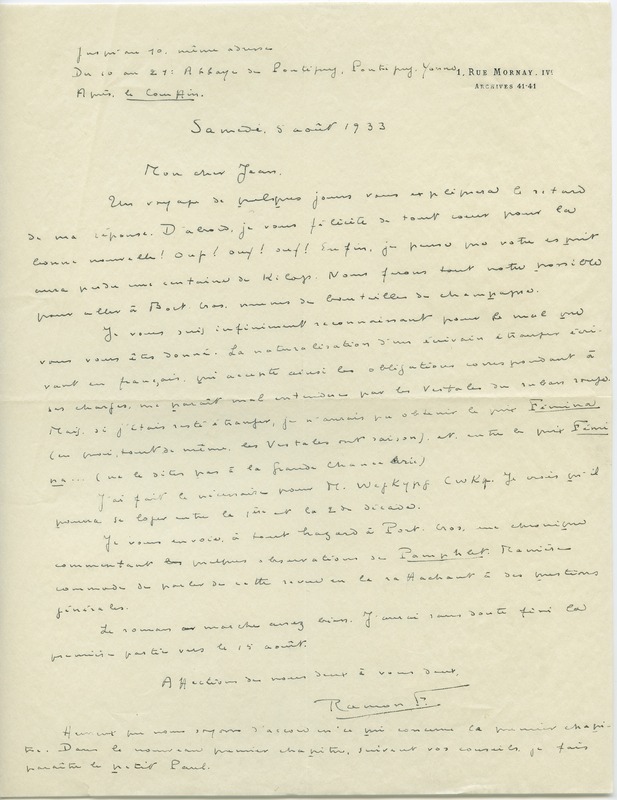 Jusqu'au 10, même adresse
Du 10 au 21: Abbaye de Pontigny, Pontigny. Yonne
1, RUE MORNAY. IVe
ARCHIVES 41-41
Après, le
Samedi, 5 août 1933
Mon cher Jean.
Un voyage de quelques jours vous expliquera le retard
de ma réponse. D'abord, je vous félicite de tout cœur pour la
bonne nouvelle! Ouf! ouf! ouf! Enfin, je pense que votre esprit
aura perdu une centaine de kilogs. Nous ferons tout notre possible
pour aller à Port. Cros, munis de bouteilles de champagne.
Je vous suis infiniment reconnaissant pour le mal que
vous vous êtes donné. La naturalisation d'un écrivain étranger écri-
vant en français, qui accepte ainsi les obligations correspondant à
ses charges, me paraît mal entendue par les Vestales du ruban rouge.
Mais, si j'étais resté étranger, je n'aurais pu obtenir le prix Fémina
(en quoi, tout de même, les Vestales ont raison). et, entre le prix Fémi
na... (ne le dites pas à la Grande Chancellerie)
J'ai fait le nécessaire pour M. Je crois qu'il
pourra se loger entre la 1ère et la 2de décade.
Je vous envoie, à tout hasard à Port. Cros, une chronique
commentant les quelques observations de Pamphlet. Manière
commode de parler de cette revue en la rattachant à des questions
générales.
Le roman marche assez bien. J'aurai sans doute fini la
première partie vers le 15 août.
Affections de nous deux à vous deux.
Ramon F.
Heureux que nous soyons d'accord en ce qui concerne le premier chapi-
tre. Dans le nouveau premier chapitre, suivant vos conseils, je fais
paraître le petit Paul.